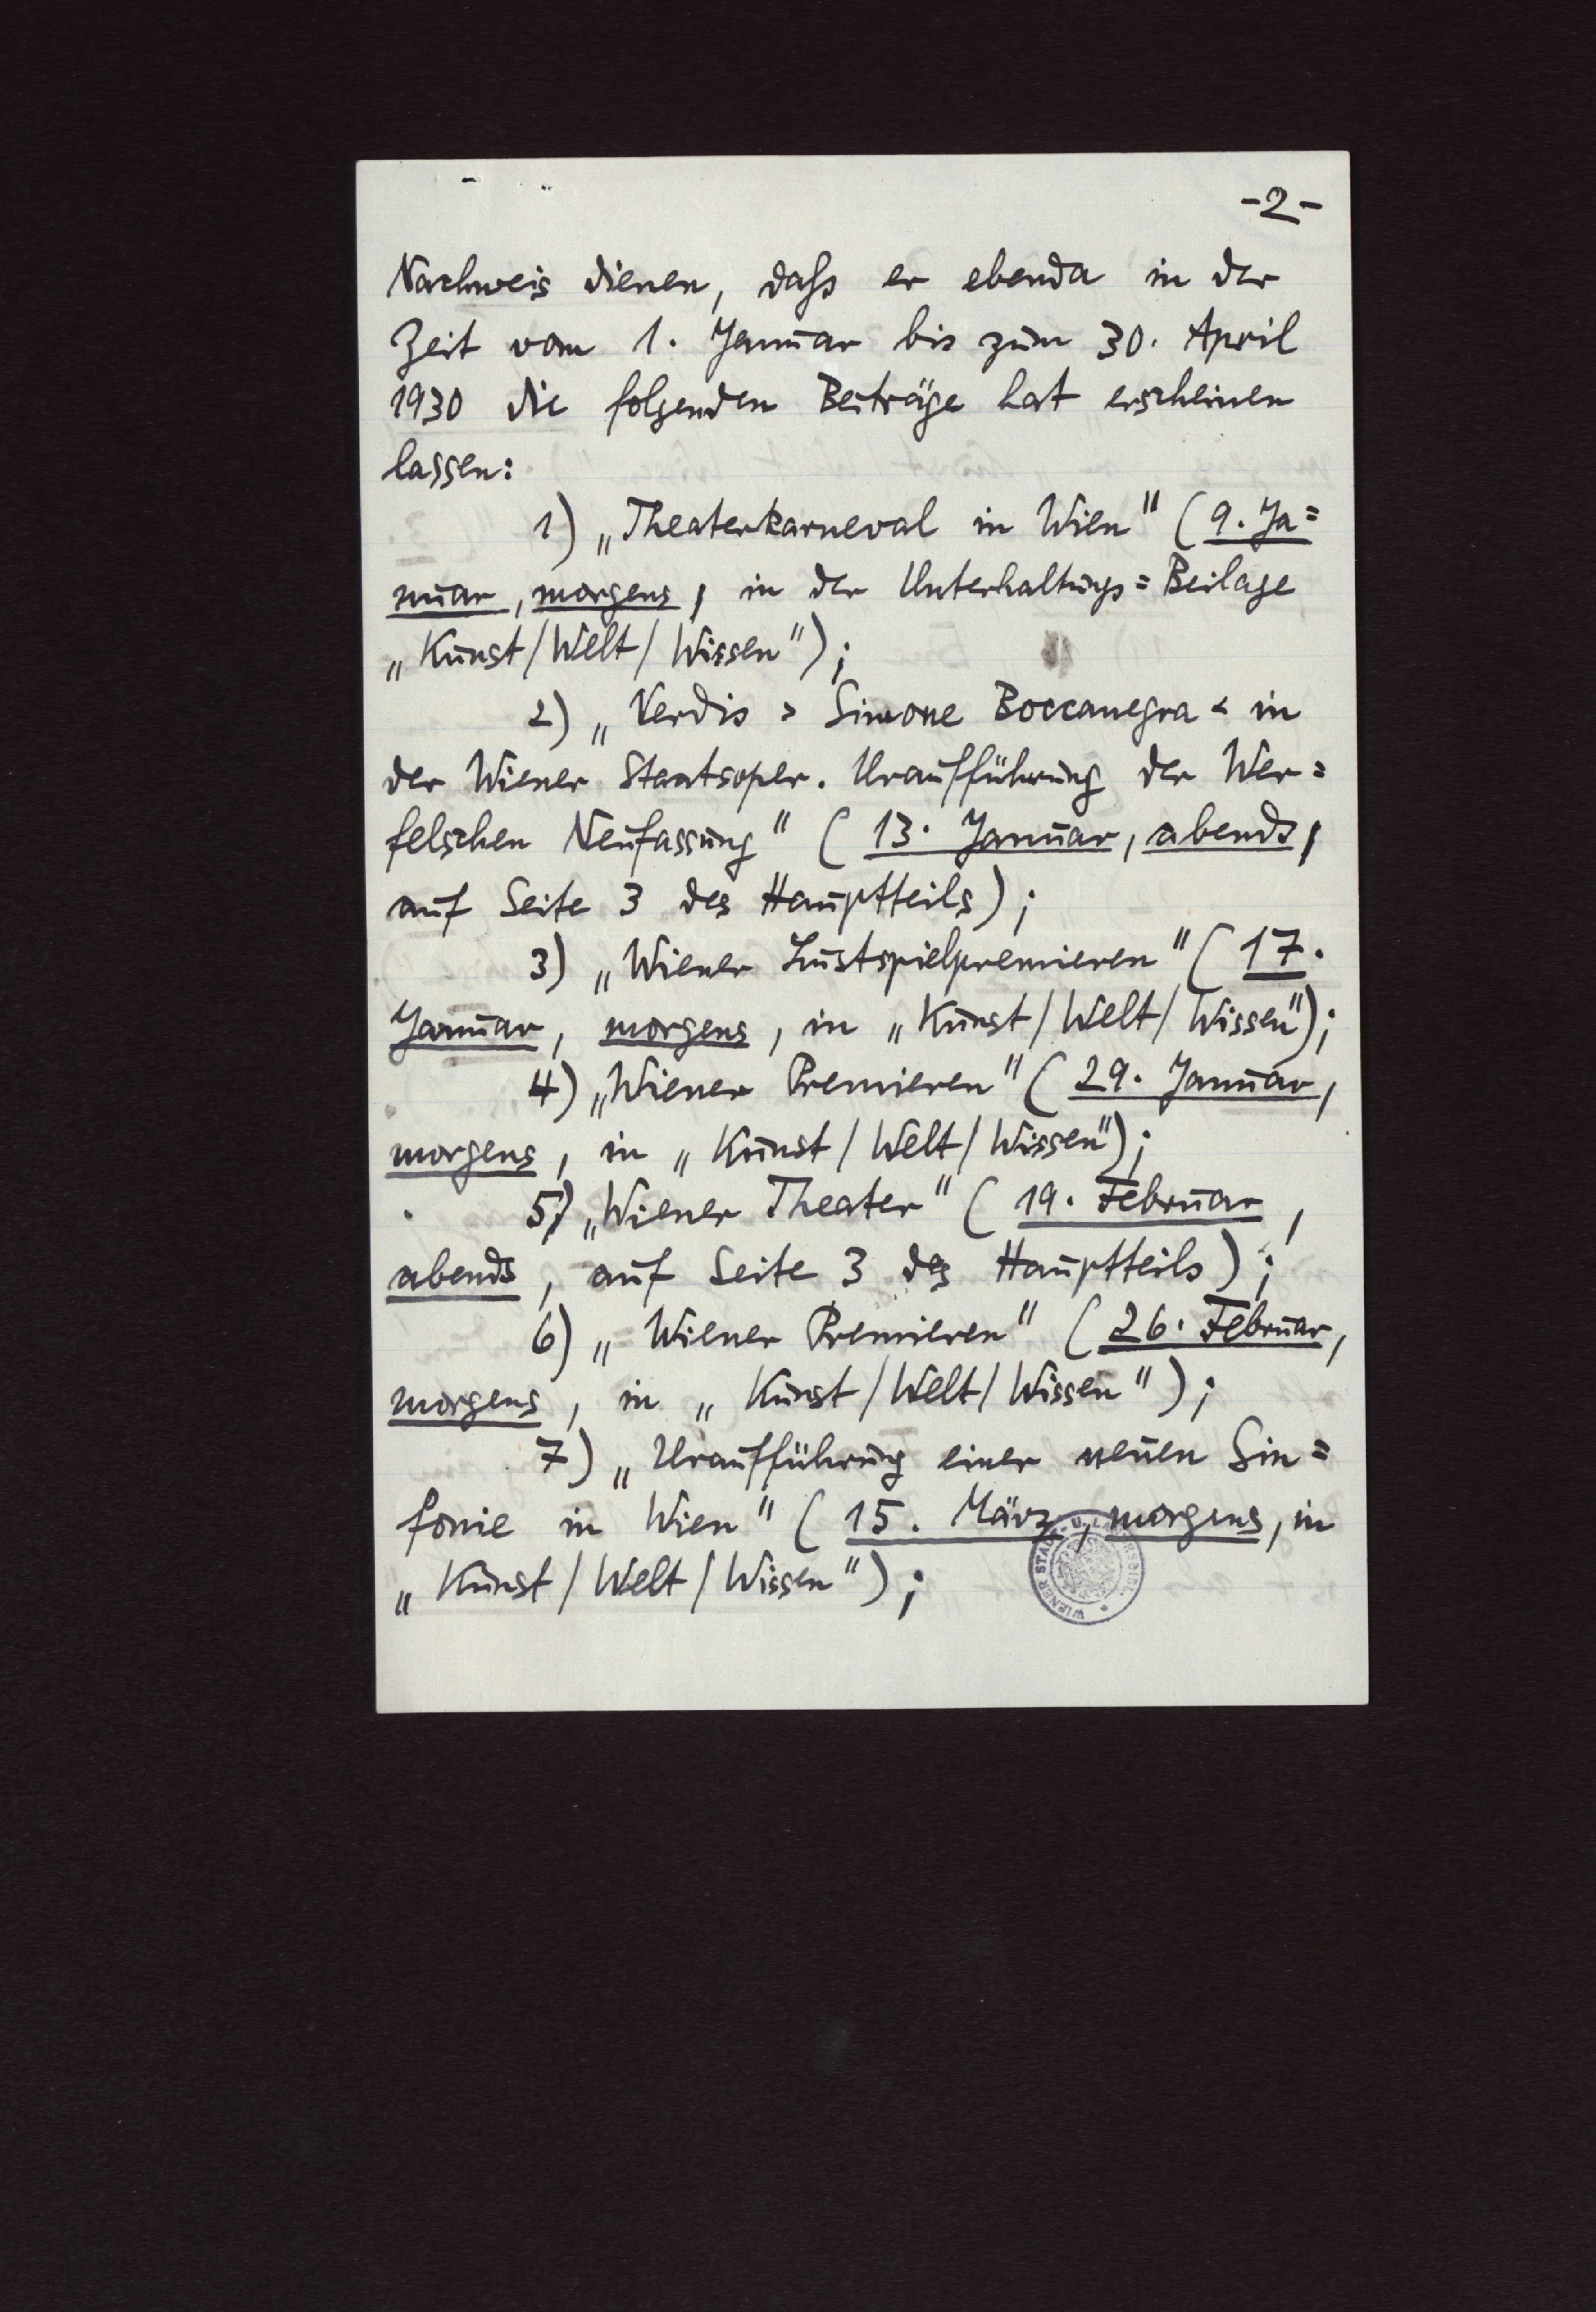 -2-
Nachweis dienen, daſs er ebenda in der
Zeit vom 1. Januar bis zum 30. April
1930 die folgenden Beiträge hat erscheinen
lassen:
1) „Theaterkarneval in Wien" (9. Ja=
nuar, morgens, in der Unterhaltungs=Beilage
„Kunst/Welt/Wissen");
2) „Verdis > Simone Boccanegra < in
der Wiener Staatsoper. Uraufführung der Wer=
felschen Neufassung" (13. Januar, abends,
auf Seite 3 des Hauptteils);
3) „Wiener Lustspielpremieren" (17.
Januar, morgens, in „Kunst/Welt/Wissen");
4) „Wiener Premieren" (29. Januar,
morgens, in „Kunst/Welt/Wissen");
5) „Wiener Theater" (19. Februar,
abends, auf Seite 3 des Hauptteils);
6) „Wiener Premieren" (26. Februar,
morgens, in „Kunst/Welt/Wissen");
7) „Uraufführung einer neuen Sin=
fonie in Wien" (15. März, morgens, in
„Kunst/Welt/Wissen");
WIENER STADT